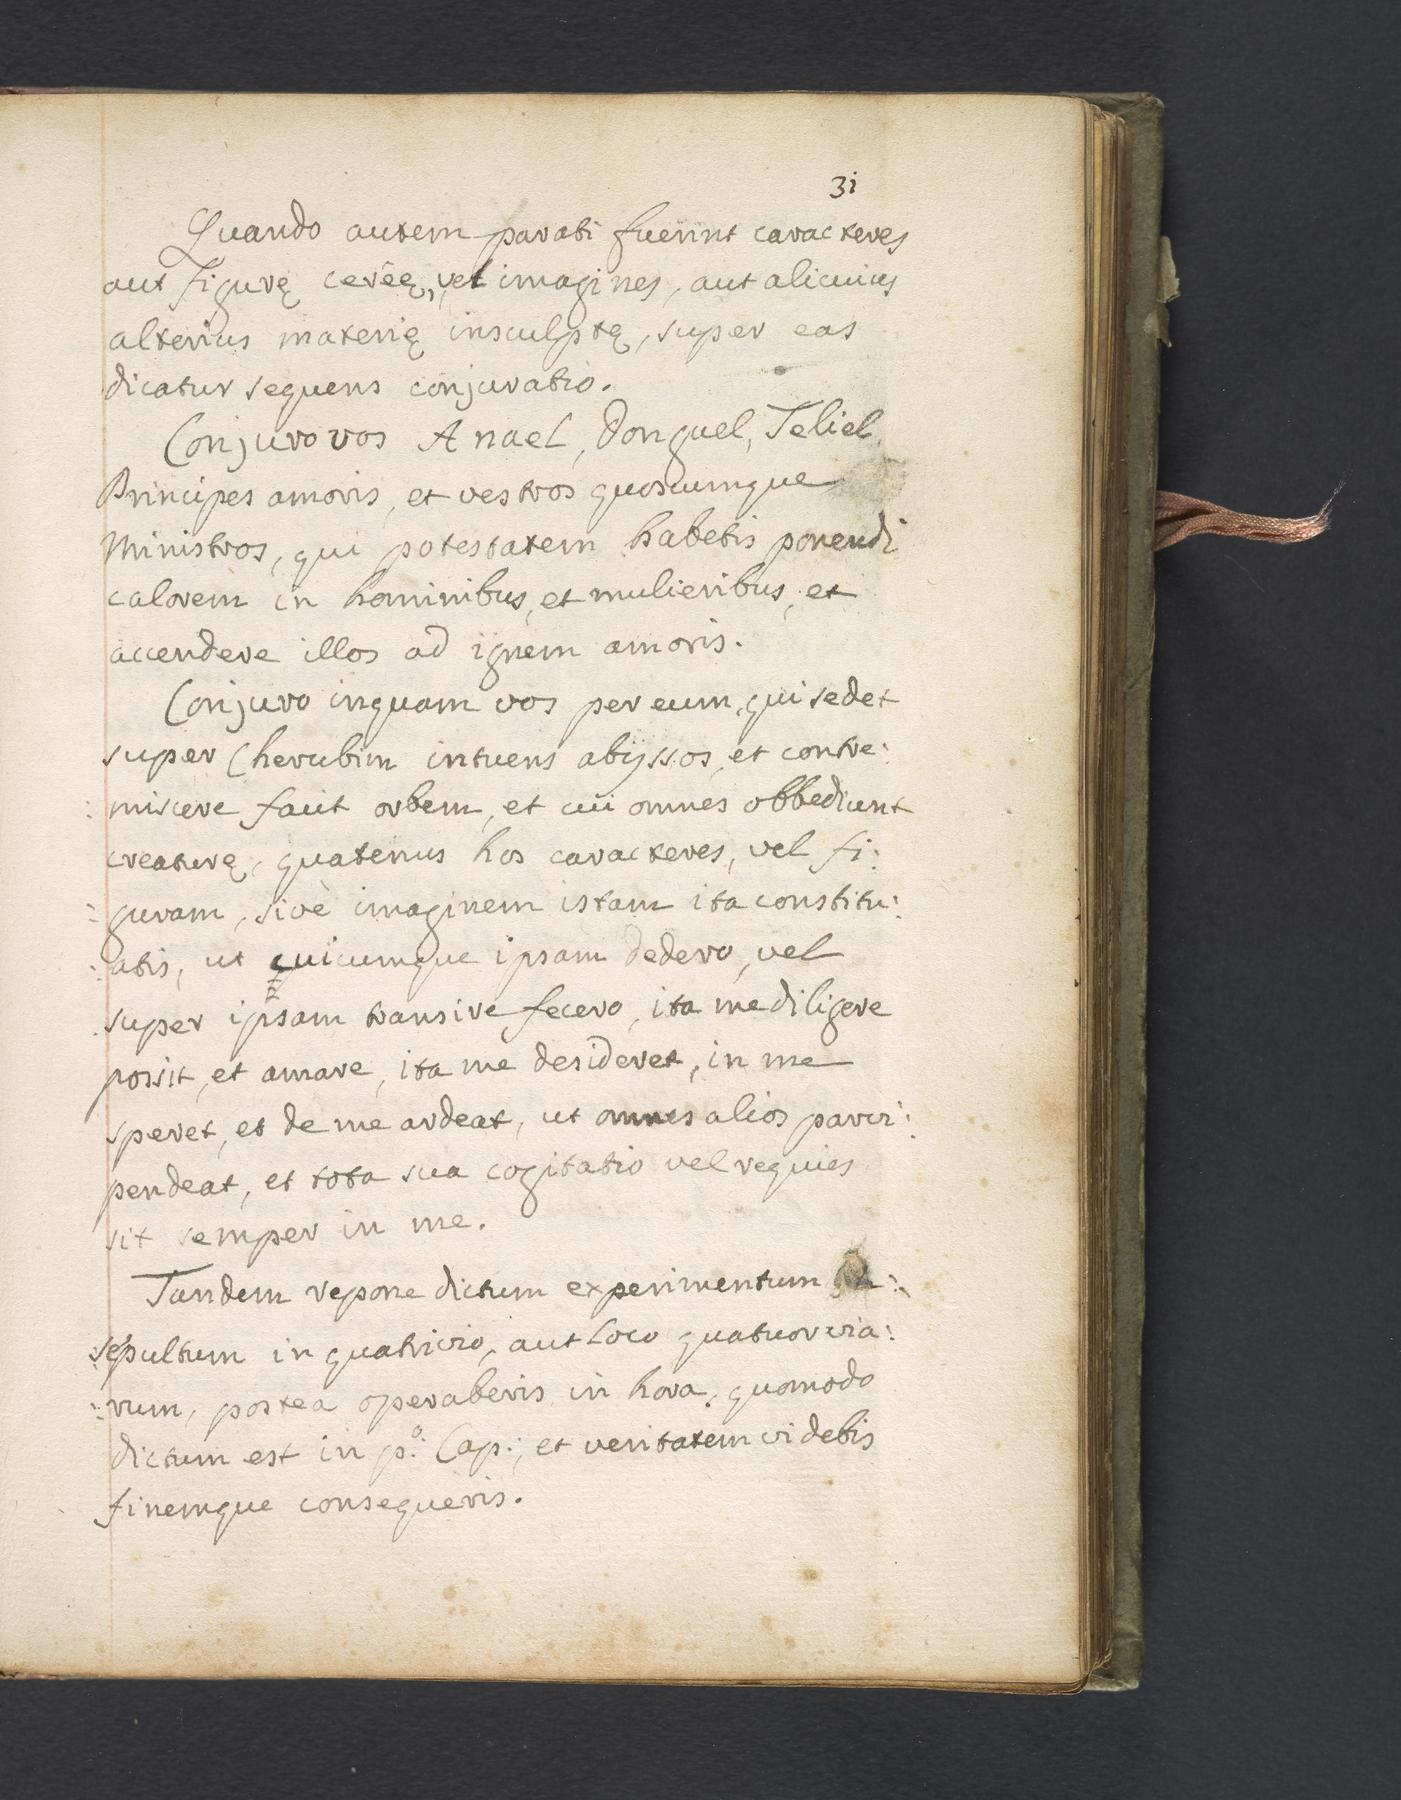 31
Quando autem parati fuerint caracteres
aut figurę cereę, vel imagines, aut alicuius
alterius materię insculptę, super eas
dicatur sequens conjuratio.
Conjuro vos Anael, Donguel, Teliel,
Principes amoris, et vestros quoscumque
Ministros, qui potestatem habetis ponendi
calorem in hominibus, et mulieribus, et
accendere illos ad ignem amoris.
Conjuro inquam vos per eum, qui sedet
super Cherubim intuens abÿssos, et contre:
:miscere facit orbem, et cui omnes obbediunt
creaturę, quatenus hos caracteres, vel fi:
:guram, sivè imaginem istam ita constitu:
:atis, ut quicumque ipsam dedero, vel
super ipsam transire fecero, ita me diligere
possit, et amare, ita me desideret, in me
speret, et de me ardeat, ut omnes alios parvi:
pendeat, et tota sua cogitatio vel requies
sit semper in me.
Tandem repone dictum experimentum
:sepultum in quatrivio, aut Loco quatuor via:
:rum, postea operaberis in hora, quomodo
dictum est in p.º Cap:, et veritatem videbis
finemque consequeris.